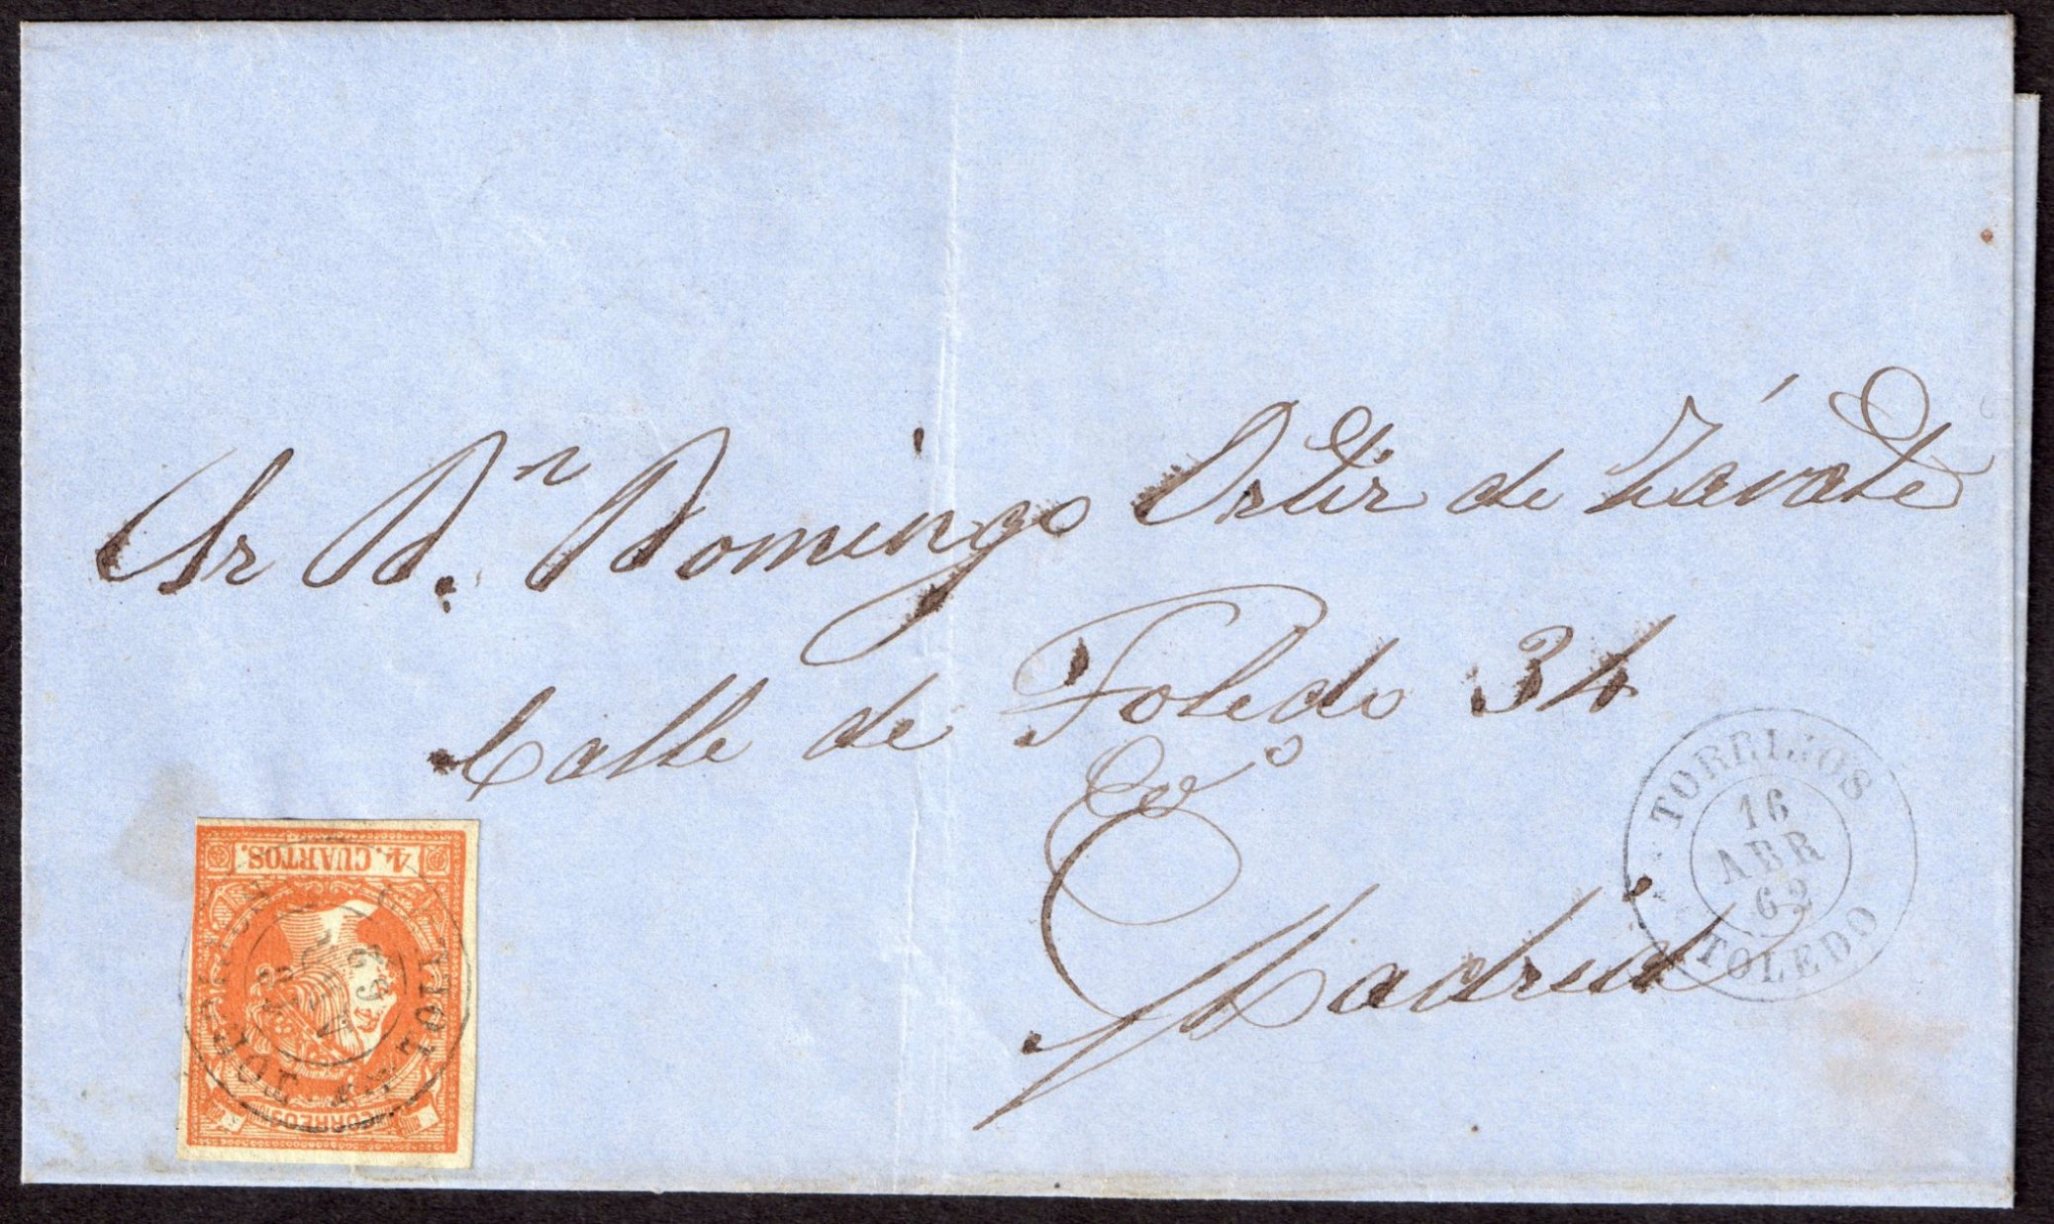 Sr D.n Domingo Ortiz de Zárate
Calle de Toledo 34
Madrid
TORRIJOS
16
ABR
62
TOLEDO
4. CUARTOS.
CORREOS